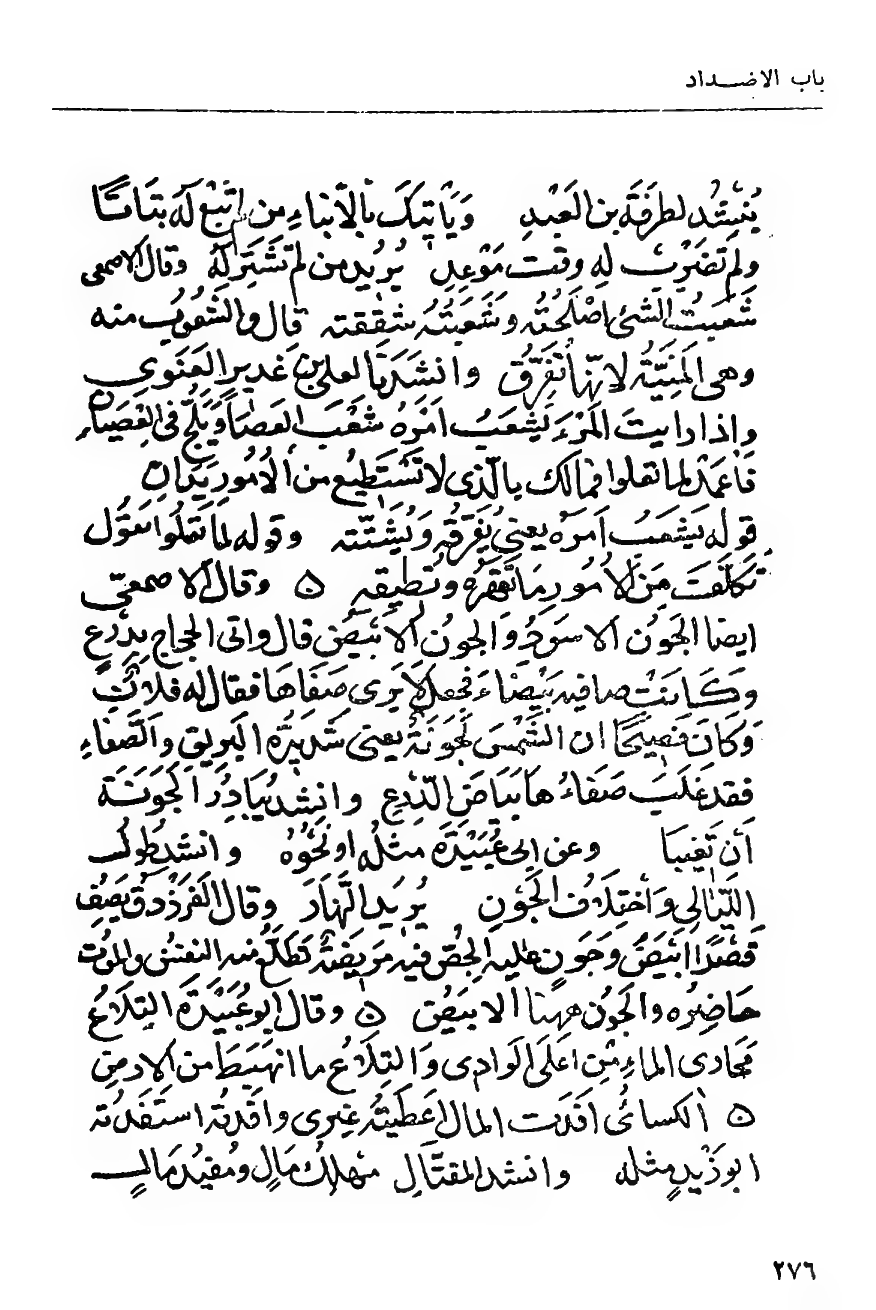 باب الاضداد
يُنشِد لطرفة بن العَبْدِ وَيَأتيكَ بالأنباءِ من لم تَبِعْ لَهُ بتاتًا
ولم تضرِب له وقت مَوْعِدِ يُريُد من لم تَشْتَرِ لهُ وقال الاصمعى
شَعَبْتُ الشئ اصْلَحْتُه وَشَعَبْتُهُ شققته قال والشعوب منه
وهى المَنِيَّةُ لانها تُفَرِّق وانشدنا لعلى بن غدير الغنوى
واذا رايتَ المَرْءَ يَشْعَبُ امْرَهُ شَعْبَ العَصَا وَيَلِجّ فى العِصيان
فَاعمَدْ لما تعلوا فمالك بالذى لا تَسْتَطِيعُ من الاُمُورِ يَدَانِ
قوله يَشعَبُ اَمرَهُ يعنى يُفَرّقُه وَيُشَتّته وقوله لما تعلوا يقول
تكلَّفْ مِنَ الاُمُورِ ما تَقْهَرُهُ وتُطِيقه ٥ وقال الاصمعىّ
ايضا الجَوْن الاسوَدُ وَالجونُ الاَبيَضُ قال واتى الحجاج بِدِرْعٍ
وكانت صافية بَيْضاءَ فجعل لا يَرى صَفَاهَا فقال له فلان
وكانَ فَصِيحًا ان الشَّمْسَ لَجَوْنَةٌ يعنى شديدة البَريقِ والصَّفاءِ
فقد غلَبَ صَفَاءُهَا بَيَاضَ الدِّرْعِ وانشد يُبَادِرُ الجَوْنَةَ
أن تَغِيبَا وعن ابى عُبَيْدَةَ مثلُه او نَحْوُهُ وانشد طُولُ
اللّيَالِى وَاختِلاَفُ الجَوْنِ يُريدُ النَّهَارَ وقال الفَرَزْدقُ يَصِفُ
قصْرًا ابيَضَ وَجَونٍ عليه الجِصُّ فيه مَريضَةٌ تَطَلَّعُ منه النفسُ والموت
حَاضِرُه والجَونُ ههنا الابيَضُ ٥ وقال ابو عُبَيْدَةَ التِلاَعُ
مَجَارى الماءِ مِن اعلَى الوَادِى وَالتِلاَعُ ما انهَبَطَ من الارضِ
٥ الكسائىُّ افَدْتُ المال اعطَيْتُهُ غيرى وافَدْتُه استَفَدْته
ابو زَيْدٍ مثله وانشد للقتّال مهلك مَالٍ ومُفِيْدُ مَالِ
٢٧٦